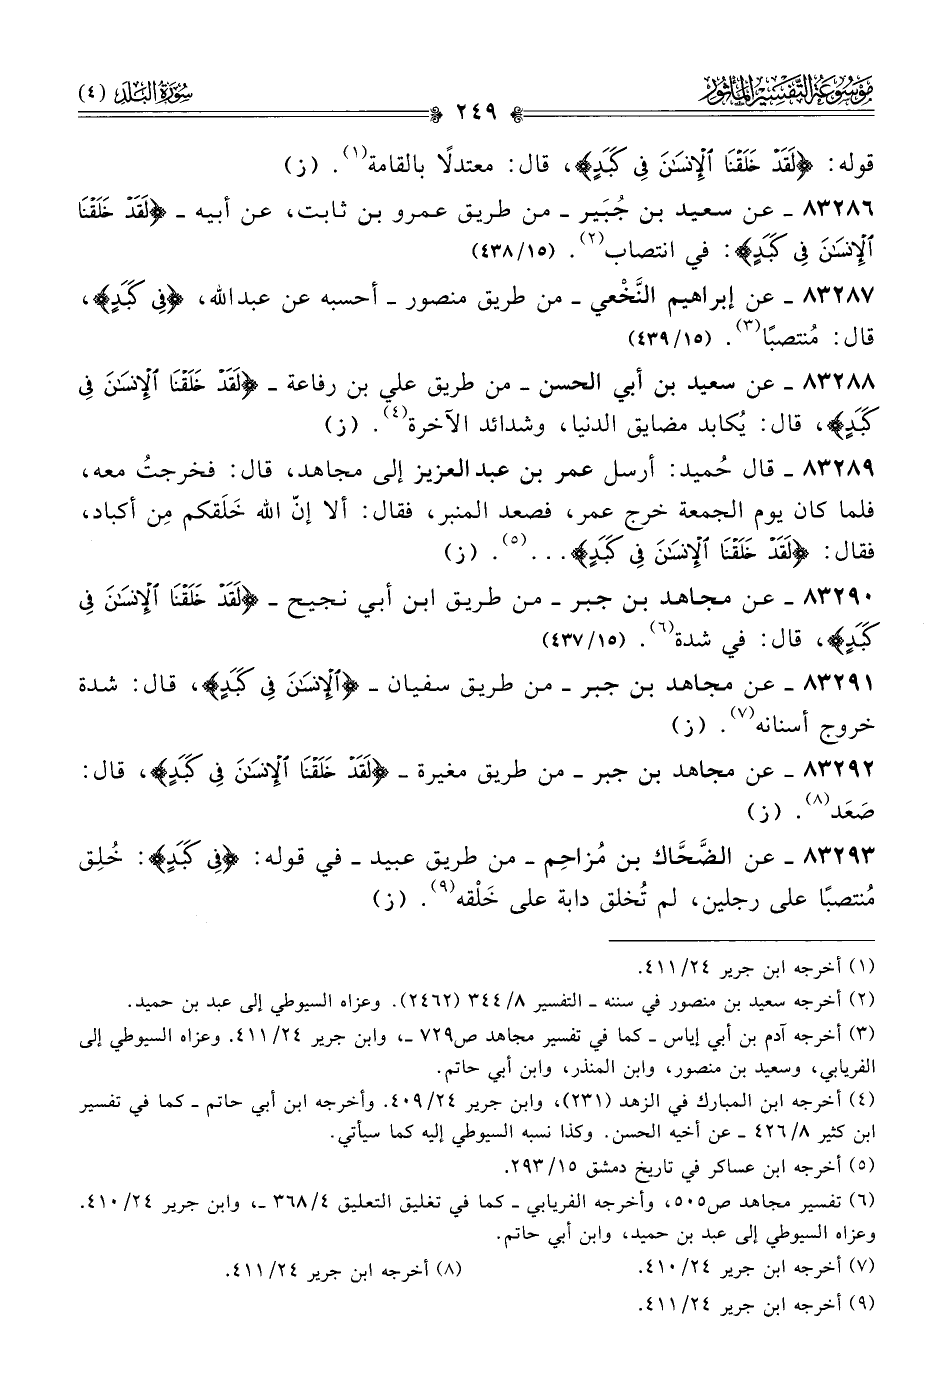 مَوْسُوعَةُ التَّفْسِيرِ المَأْثُور
سُورَةُ البَلَدِ (٤)
٢٤٩
قوله: ﴿لَقَدْ خَلَقْنَا ٱلْإِنسَٰنَ فِى كَبَدٍ﴾، قال: معتدلًا بالقامة(١). (ز)
٨٣٢٨٦ ـ عن سعيد بن جُبَير ـ من طريق عمرو بن ثابت، عن أبيه ـ ﴿لَقَدْ خَلَقْنَا
ٱلْإِنسَٰنَ فِى كَبَدٍ﴾: في انتصاب(٢). (٤٣٨/١٥)
٨٣٢٨٧ ـ عن إبراهيم النَّخْعي ـ من طريق منصور ـ أحسبه عن عبدالله، ﴿فِى كَبَدٍ﴾،
قال: مُنتصبًا(٣). (٤٣٩/١٥)
٨٣٢٨٨ ـ عن سعيد بن أبي الحسن ـ من طريق علي بن رفاعة ـ ﴿لَقَدْ خَلَقْنَا ٱلْإِنسَٰنَ فِى
كَبَدٍ﴾، قال: يُكابد مضايق الدنيا، وشدائد الآخرة(٤). (ز)
٨٣٢٨٩ ـ قال حُميد: أرسل عمر بن عبدالعزيز إلى مجاهد، قال: فخرجتُ معه،
فلما كان يوم الجمعة خرج عمر، فصعد المنبر، فقال: ألا إنّ الله خَلَقكم مِن أكباد،
فقال: ﴿لَقَدْ خَلَقْنَا ٱلْإِنسَٰنَ فِى كَبَدٍ﴾...(٥). (ز)
٨٣٢٩٠ ـ عن مجاهد بن جبر ـ من طريق ابن أبي نجيح ـ ﴿لَقَدْ خَلَقْنَا ٱلْإِنسَٰنَ فِى
كَبَدٍ﴾، قال: في شدة(٦). (٤٣٧/١٥)
٨٣٢٩١ ـ عن مجاهد بن جبر ـ من طريق سفيان ـ ﴿ٱلْإِنسَٰنَ فِى كَبَدٍ﴾، قال: شدة
خروج أسنانه(٧). (ز)
٨٣٢٩٢ ـ عن مجاهد بن جبر ـ من طريق مغيرة ـ ﴿لَقَدْ خَلَقْنَا ٱلْإِنسَٰنَ فِى كَبَدٍ﴾، قال:
صَعَد(٨). (ز)
٨٣٢٩٣ ـ عن الضَّحَّاك بن مُزاحِم ـ من طريق عبيد ـ في قوله: ﴿فِى كَبَدٍ﴾: خُلِق
مُنتصبًا على رجلين، لم تُخلق دابة على خَلْقه(٩). (ز)
(١) أخرجه ابن جرير ٤١١/٢٤.
(٢) أخرجه سعيد بن منصور في سننه ـ التفسير ٣٤٤/٨ (٢٤٦٢). وعزاه السيوطي إلى عبد بن حميد.
(٣) أخرجه آدم بن أبي إياس ـ كما في تفسير مجاهد ص٧٢٩ ـ، وابن جرير ٤١١/٢٤. وعزاه السيوطي إلى
الفريابي، وسعيد بن منصور، وابن المنذر، وابن أبي حاتم.
(٤) أخرجه ابن المبارك في الزهد (٢٣١)، وابن جرير ٤٠٩/٢٤. وأخرجه ابن أبي حاتم ـ كما في تفسير
ابن كثير ٤٢٦/٨ ـ عن أخيه الحسن. وكذا نسبه السيوطي إليه كما سيأتي.
(٥) أخرجه ابن عساكر في تاريخ دمشق ٢٩٣/١٥.
(٦) تفسير مجاهد ص٥٠٥، وأخرجه الفريابي ـ كما في تغليق التعليق ٣٦٨/٤ ـ، وابن جرير ٤١٠/٢٤.
وعزاه السيوطي إلى عبد بن حميد، وابن أبي حاتم.
(٧) أخرجه ابن جرير ٤١٠/٢٤.
(٨) أخرجه ابن جرير ٤١١/٢٤.
(٩) أخرجه ابن جرير ٤١١/٢٤.